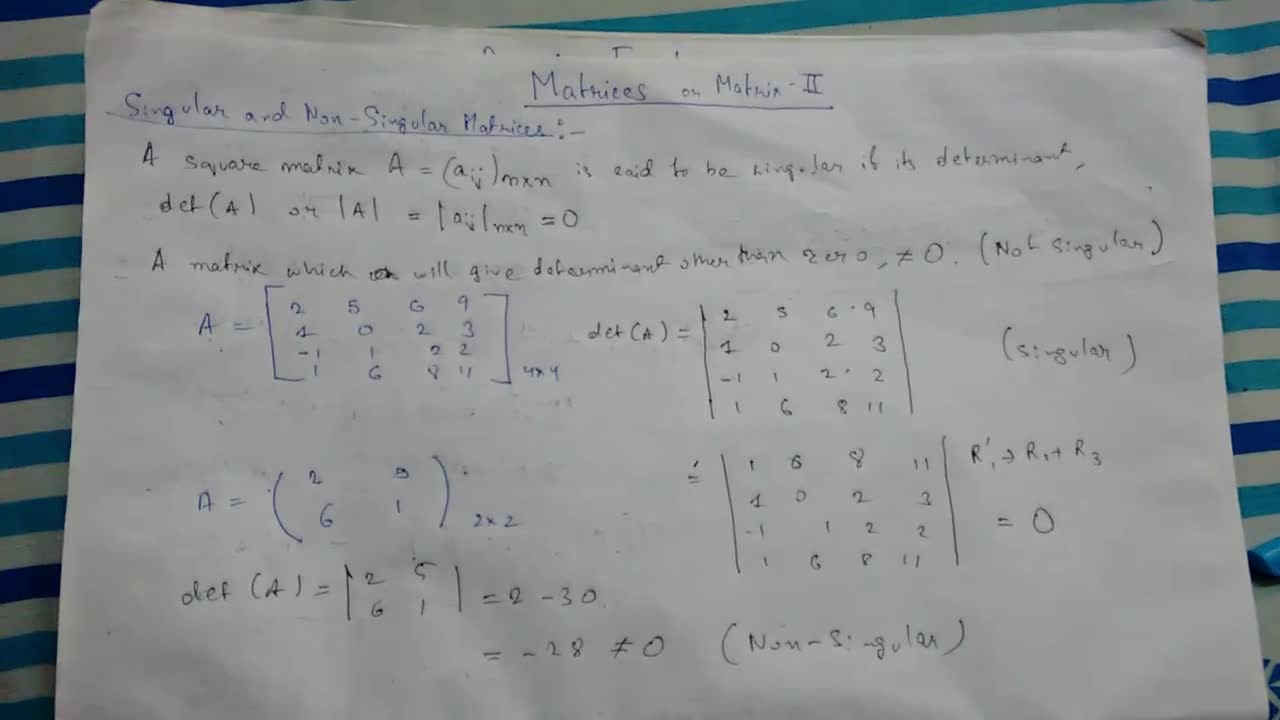 Matrices or Matrix-II
Singular and Non-Singular Matrices:-
A square matrix A = (aij)n×n is said to be singular if its determinant,
det(A) or |A| = |aij|n×n = 0
A matrix which will give determinant other than zero, ≠ 0. (Not Singular)
A = [
2 5 6 9
1 0 2 3
-1 1 2 2
1 6 8 11
]4×4
det(A) = |
2 5 6 9
1 0 2 3
-1 1 2 2
1 6 8 11
| (Singular)
= |
1 6 8 11
1 0 2 3
-1 1 2 2
1 6 8 11
| R'1 → R1 + R3
= 0
A = (
2 5
6 1
)2×2
det (A) = |
2 5
6 1
| = 2 - 30.
= -28 ≠ 0 (Non-Singular)